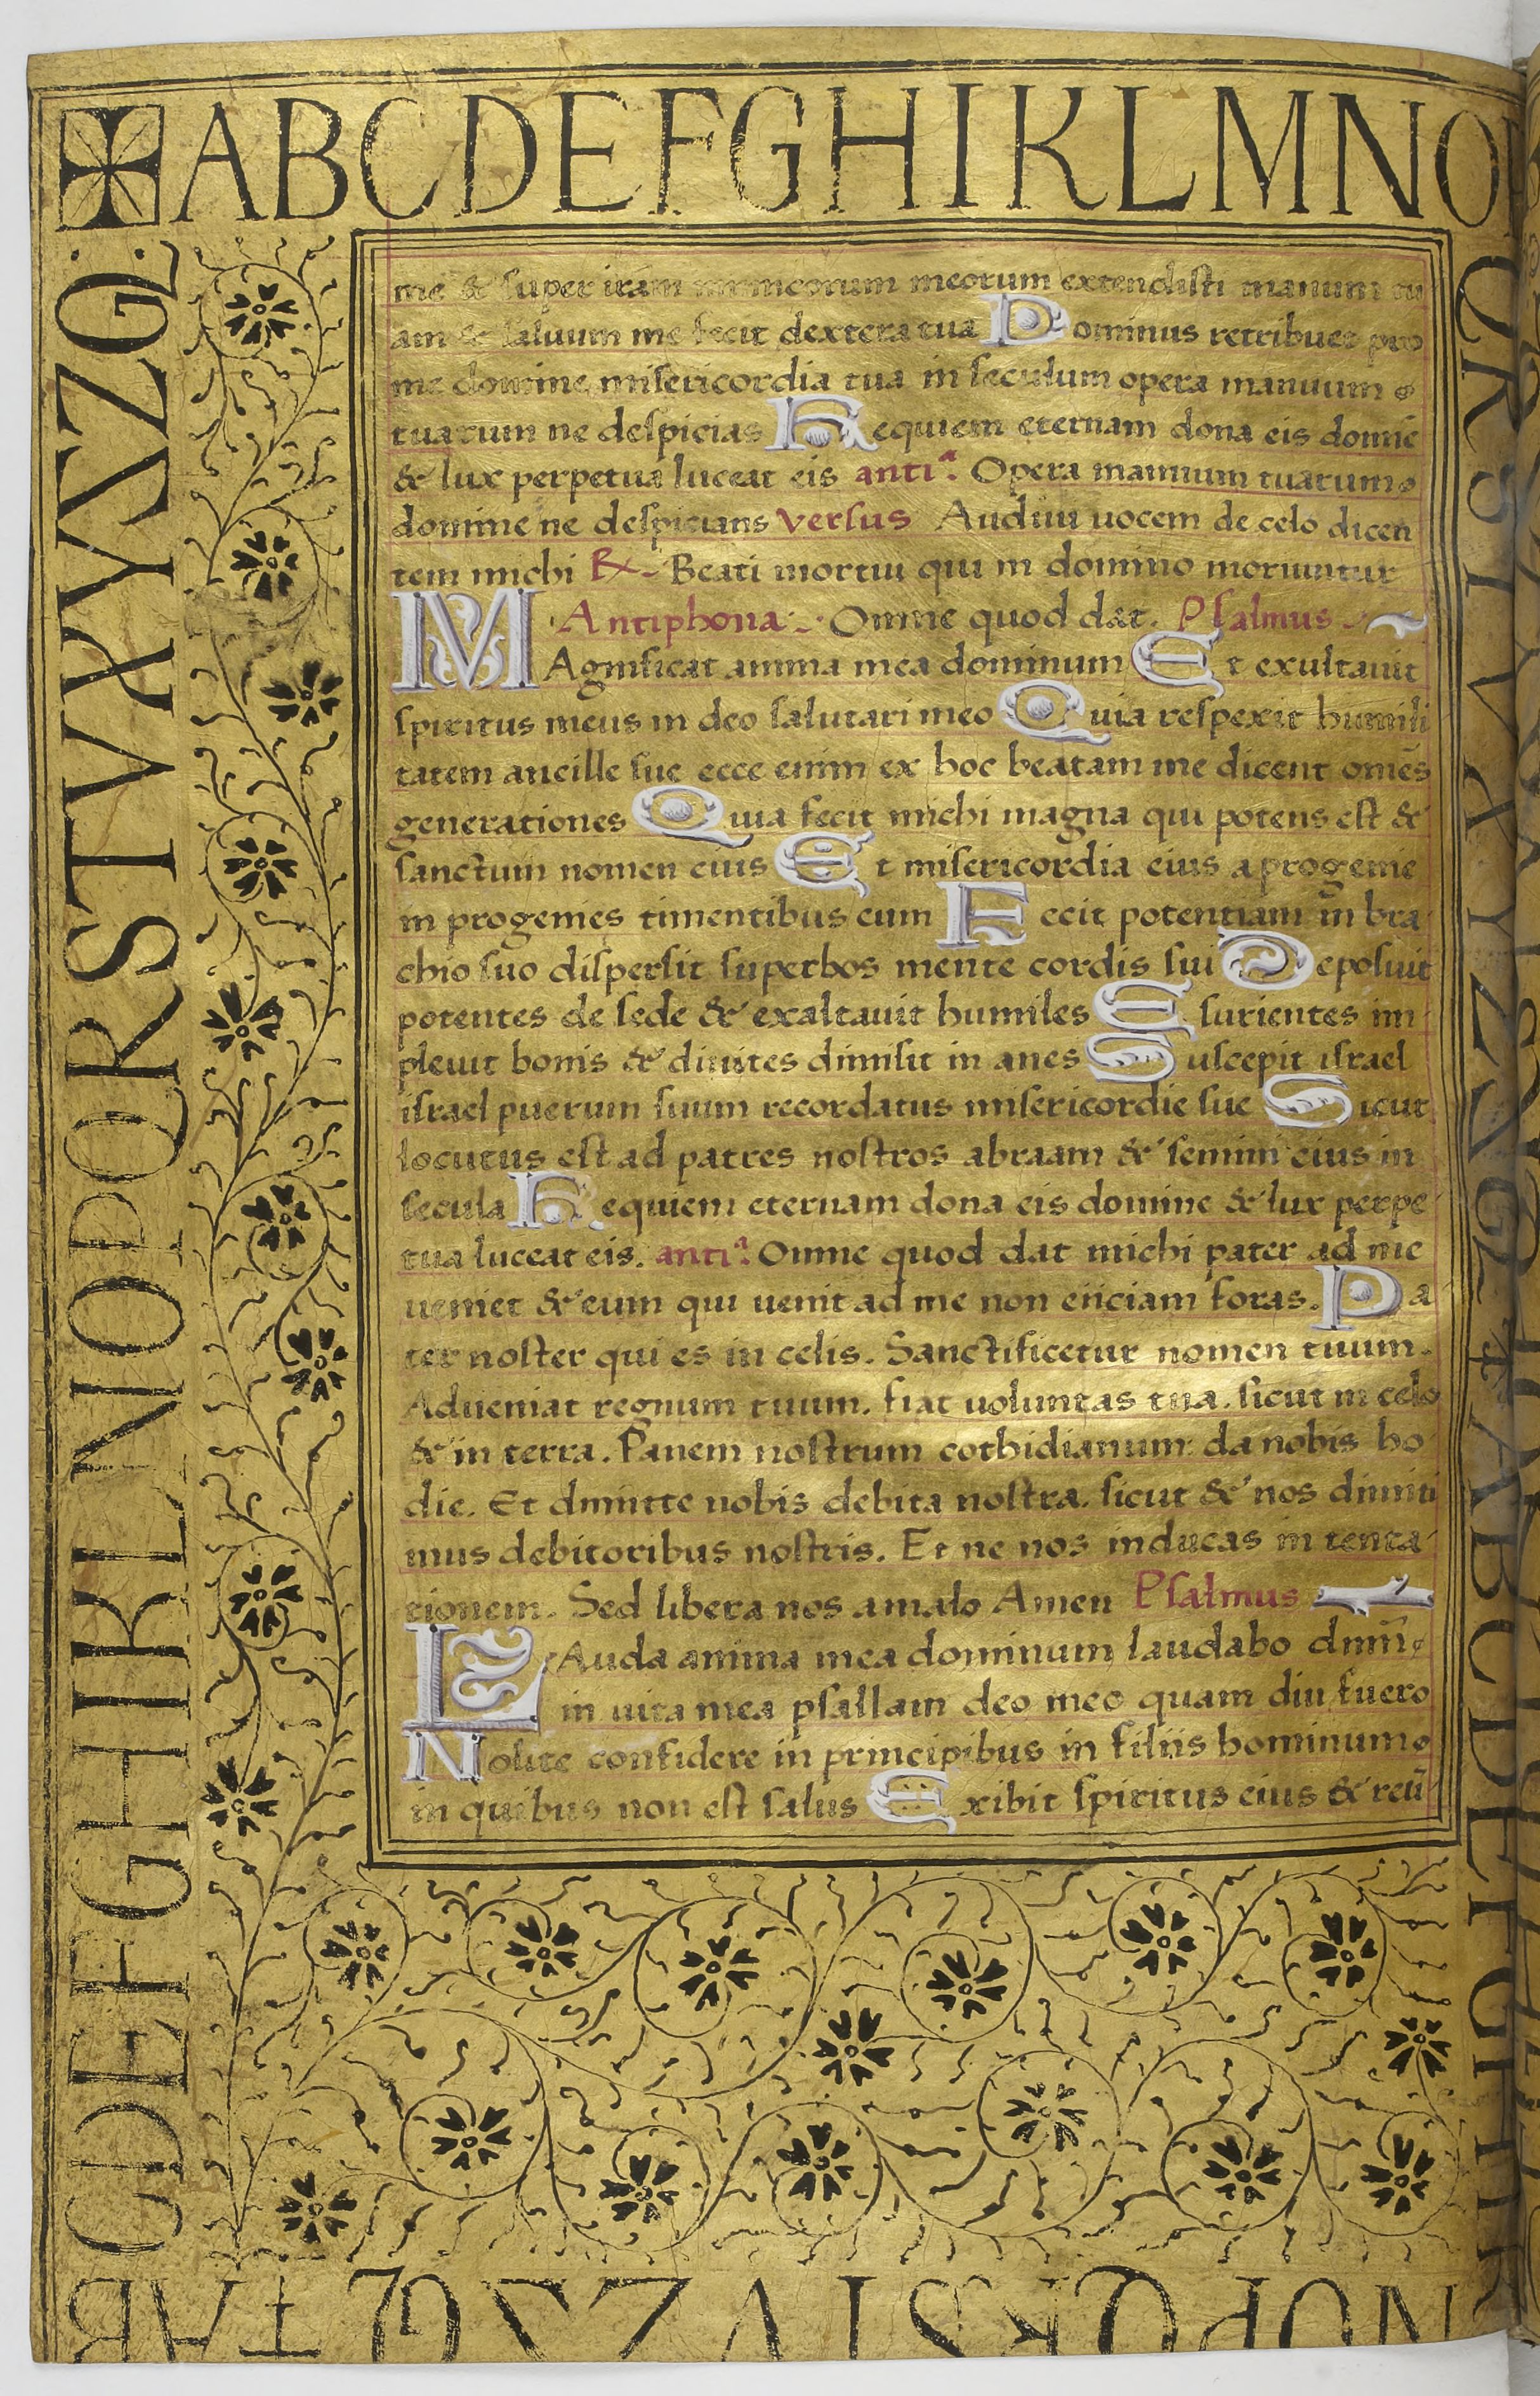 ABCDEFGHIKLMNO
me & super iram inimicorum meorum extendisti manum tu
am & saluum me fecit dextera tua Dominus retribuet pro
me domine misericordia tua in seculum opera manuum
tuarum ne despicias Requiem eternam dona eis domīe
& lux perpetua luceat eis antiª. Opera manuum tuarum
domine ne despicians versus Audiui uocem de celo dicen
tem michi ℟ Beati mortui qui in domino moriuntur
Antiphona. Omne quod dat. Psalmus
MAgnificat anima mea dominum Et exultauit
spiritus meus in deo salutari meo Quia respexit humili
tatem ancille sue ecce enim ex hoc beatam me dicent omēs
generationes Quia fecit michi magna qui potens est &
sanctum nomen eius Et misericordia eius a progenie
in progenies timentibus eum Fecit potentiam in bra
chio suo dispersit superbos mente cordis sui Deposuit
potentes de sede & exaltauit humiles Esurientes im
pleuit bonis & diuites dimisit in anes Suscepit israel
israel puerum suum recordatus misericordie sue Sicut
locutus est ad patres nostros abraam & semini eius in
secula Requiem eternam dona eis domine & lux perpe
tua luceat eis. antiª. Omne quod dat michi pater ad me
ueniet & eum qui uenit ad me non eiiciam foras. Pa
ter noster qui es in celis. Sanctificetur nomen tuum.
Adueniat regnum tuum. fiat uoluntas tua. sicut in celo
& in terra. Panem nostrum cothidianum da nobis ho
die. Et dimitte nobis debita nostra. sicut & nos dimiti
mus debitoribus nostris. Et ne nos inducas in tenta
tionem. Sed libera nos a malo Amen Psalmus
LAuda anima mea dominum laudabo dnm̄
in uita mea psallam deo meo quam diu fuero
Nolite confidere in principibus in filiis hominum
in quibus non est salus Exibit spiritus eius & reū
QRSTVXYZQ ABCDEFGHIK
NOPQRSTVXZQ AB
CDEFGHIKLNOPQRSTVXYSZQ